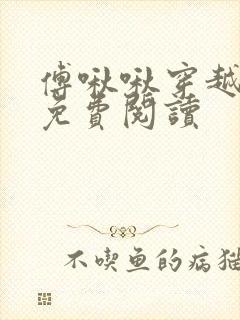 傅啾啾穿越
免費閱讀
不喫鱼的病猫